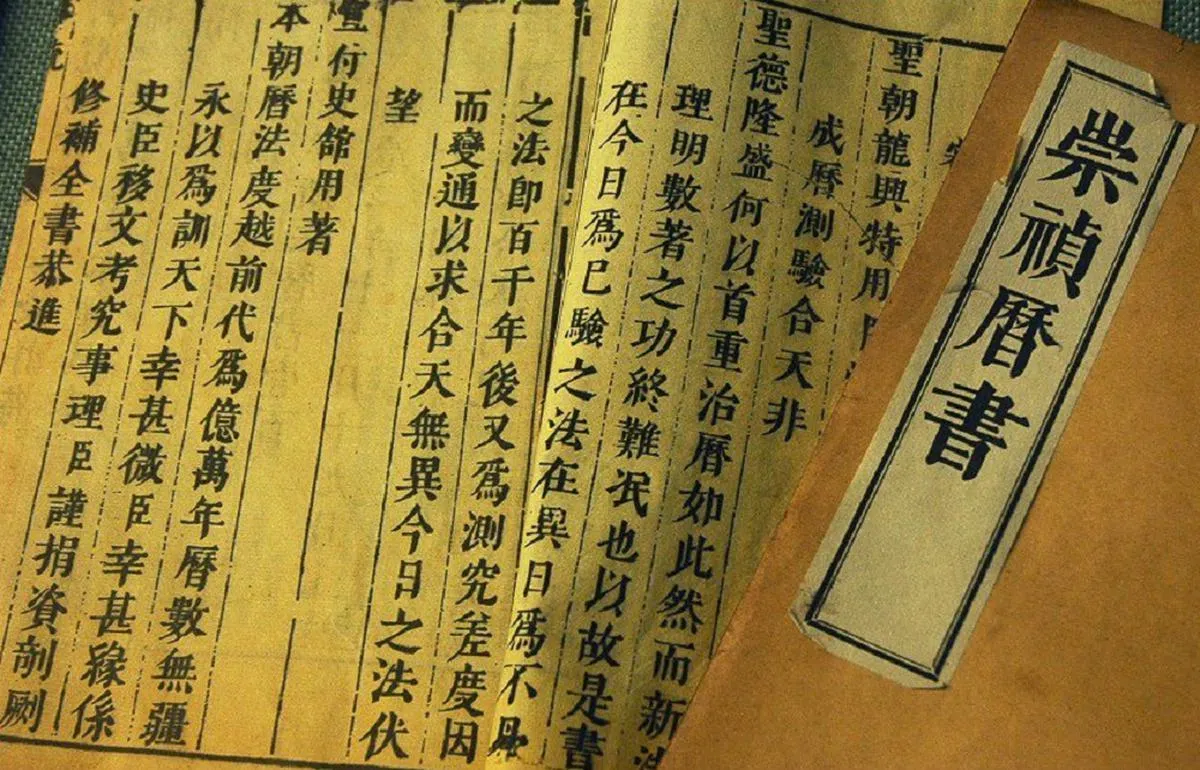 崇禎曆書
聖朝龍興特用
成曆測驗合天非
聖德隆盛何以首重治曆如此然而新法
理明數著之功終難泯也以故是書
在今日爲已驗之法在異日爲不
之法即百千年後又爲測究差度因
而變通以求合天無異今日之法伏
望
宣付史館用著
本朝曆法度越前代爲億萬年曆數無疆
永以爲訓天下幸甚微臣幸甚緣係
史臣移文考究事理臣謹捐資剞劂
修補全書恭進